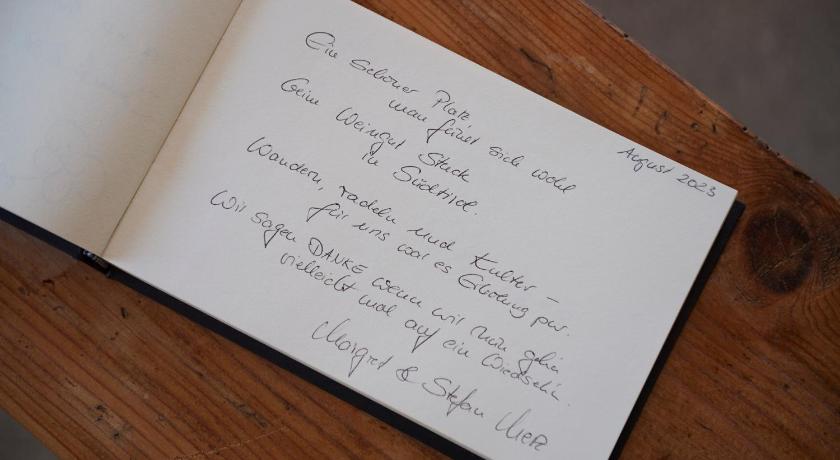 August 2023
Ein schöner Platz
man fühlt sich wohl
beim Weingut Stuck
in Südtirol.
Wandern, radeln und Kultur –
für uns war es Erholung pur.
Wir sagen DANKE wenn wir nun gehn
vielleicht mal auf ein Wiedersehn.
Margret & Stefan